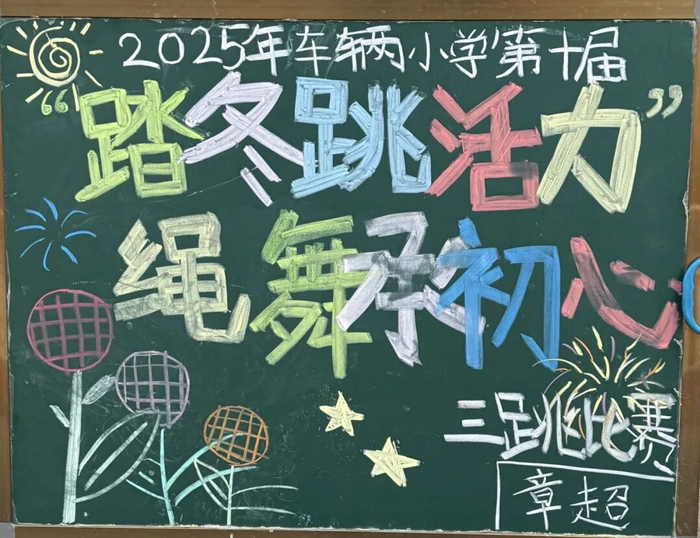 2025年车辆小学第十届
“踏冬跳活力”
绳舞承初心
三跳比赛
章超